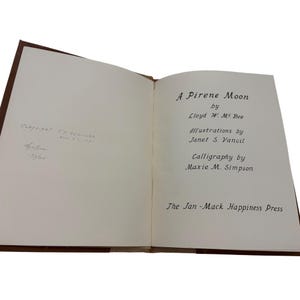 A Pirene Moon
by
Lloyd W. McBee
Illustrations by
Janet S. Vancil
Calligraphy by
Maxie M. Simpson
The Jan-Mack Happiness Press